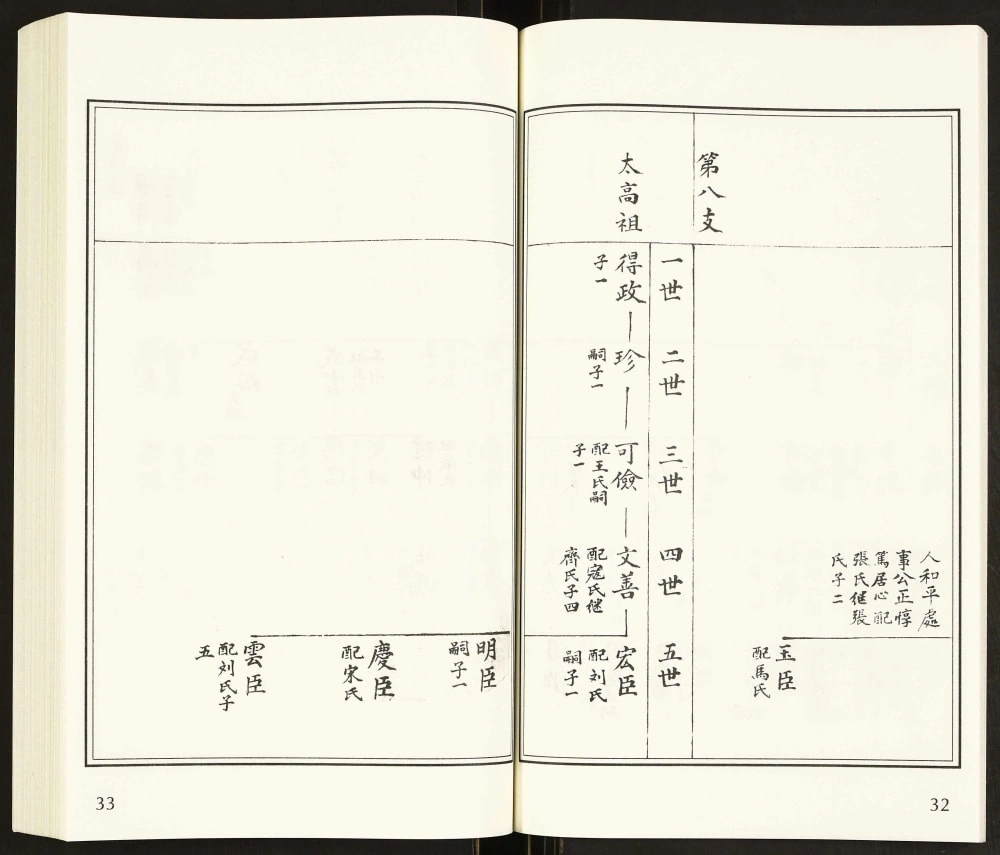 人和平處
事公正惇
篤居心配
張氏继張
氏子二
玉臣
配馬氏
第八支
一世
二世
三世
四世
五世
太高祖
得政
子一
珍
嗣子一
可儉
配王氏嗣
子一
文善
配寇氏继
齊氏子四
宏臣
配刘氏
嗣子一
32
明臣
嗣子一
慶臣
配宋氏
雲臣
配刘氏子
五
33